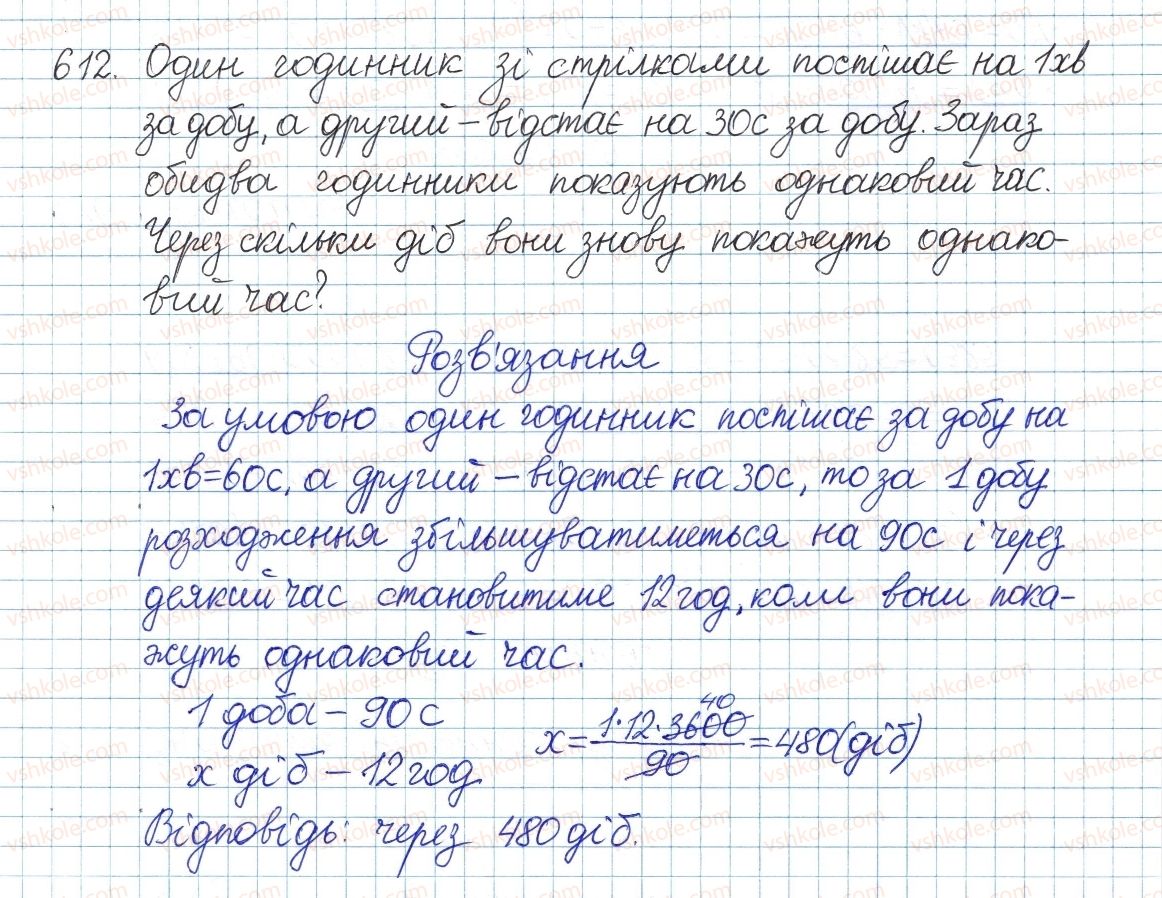 612. Один годинник зі стрілками поспішає на 1хв
за добу, а другий – відстає на 30с за добу. Зараз
обидва годинники показують однаковий час.
Через скільки діб вони знову покажуть однако-
вий час?
Розв'язання
За умовою один годинник поспішає за добу на
1хв=60с, а другий – відстає на 30с, то за 1 добу
розходження збільшуватиметься на 90с і через
деякий час становитиме 12 год, коли вони пока-
жуть однаковий час.
1 доба – 90с
х діб – 12 год
х = (1·12·3600)/90 = 480 (діб)
40
Відповідь: через 480 діб.
vshkole.com